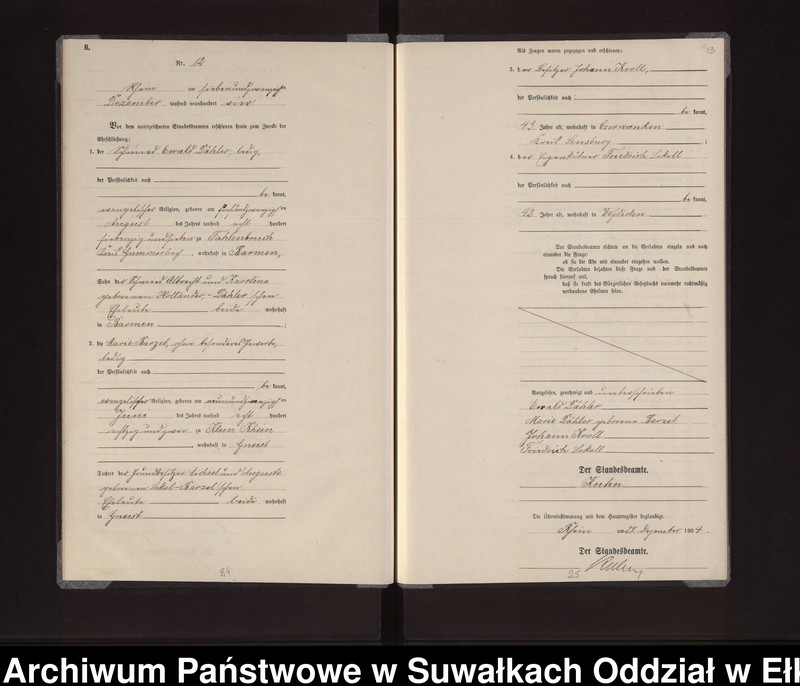 8.
Nr. 12
Rhein am siebenundzwanzigsten
Dezember tausend neunhundert vier
Vor dem unterzeichneten Standesbeamten erschienen heute zum Zwecke der
Eheschließung:
1. der Schmied Ewald Dähler, ledig,
der Persönlichkeit nach
be kannt,
evangelischer Religion, geboren am fünfundzwanzigsten
August des Jahres tausend acht hundert
siebenzig und sieben zu
Kreis Gummersbach, wohnhaft in Barmen,
Sohn der Schmied Albrecht und Karoline
geborenen Holländer-Dähler'schen
Eheleute beide wohnhaft
in Barmen ;
2. die Marie Barzel, ohne besonderes Gewerbe,
ledig
der Persönlichkeit nach
be kannt,
evangelischer Religion, geboren am neunundzwanzigsten
Juni des Jahres tausend acht hundert
achtzig und zwei zu Klein Rhein
, wohnhaft in Gneist
Tochter der Grundbesitzer und Auguste
geborenen Sokol-Barzel'schen
Eheleute beide wohnhaft
in Gneist
24
13
Als Zeugen waren zugezogen und erschienen:
3. der Besitzer Johann Kroll,
der Persönlichkeit nach
be kannt,
43 Jahre alt, wohnhaft in Czerwanken
Kreis Sensburg ;
4. der Eigenkätner Friedrich Sokoll
der Persönlichkeit nach
be kannt,
42 Jahre alt, wohnhaft in
Der Standesbeamte richtete an die Verlobten einzeln und nach
einander die Frage:
ob sie die Ehe mit einander eingehen wollen.
Die Verlobten bejahten diese Frage und der Standesbeamte
sprach hierauf aus,
daß sie kraft des Bürgerlichen Gesetzbuchs nunmehr rechtmäßig
verbundene Eheleute seien.
Vorgelesen, genehmigt und unterschrieben
Ewald Dähler
Marie Dähler geborene Barzel
Johann Kroll
Friedrich Sokoll
Der Standesbeamte.
Kuhn
Die Übereinstimmung mit dem Hauptregister beglaubigt.
Rhein am 27. Dezember 1904.
Der Standesbeamte.
Kuhn
25
Archiwum Państwowe w Suwałkach Oddział w Ełk